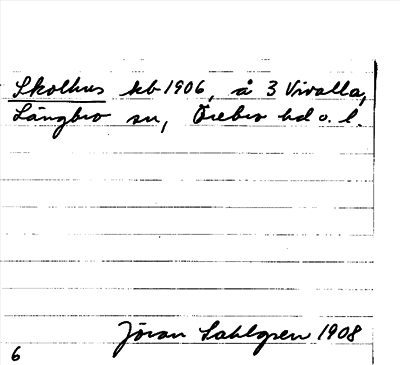 Skolhus kb 1906, å 3 Vivalla,
Längbro sn, Örebro hd o. l.
Jöran Sahlgren 1908
6